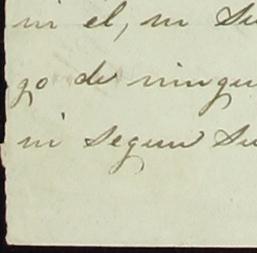 ni el, ni su
go de ningu
ni segun su